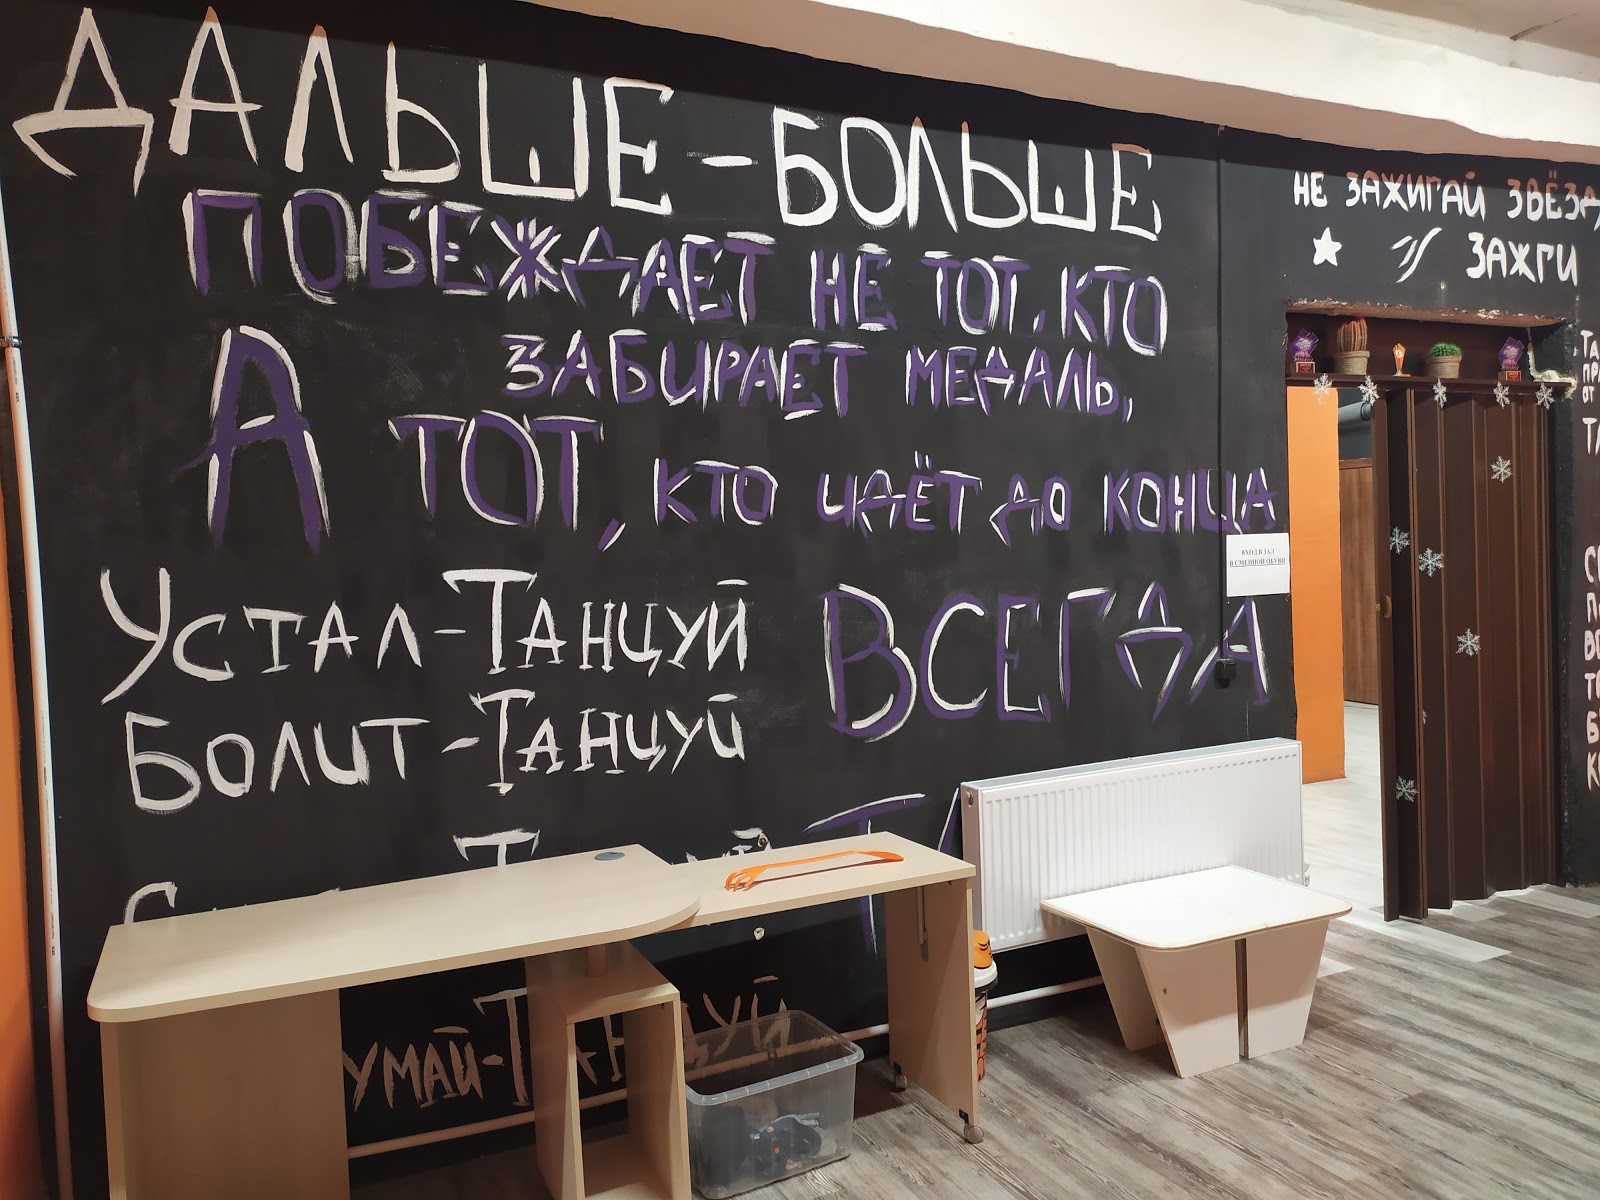 ДАЛЬШЕ-БОЛЬШЕ
ПОБЕЖДАЕТ НЕ ТОТ, КТО
ЗАБИРАЕТ МЕДАЛЬ,
А ТОТ, КТО ИДЁТ ДО КОНЦА
УСТАЛ-ТАНЦУЙ
БОЛИТ-ТАНЦУЙ
ВСЕГДА
УМАЙ-ТАНЦУЙ
НЕ ЗАЖИГАЙ ЗВЁЗД
ЗАЖГИ
ВХОД В ЗАЛ
В СМЕННОЙ ОБУВИ